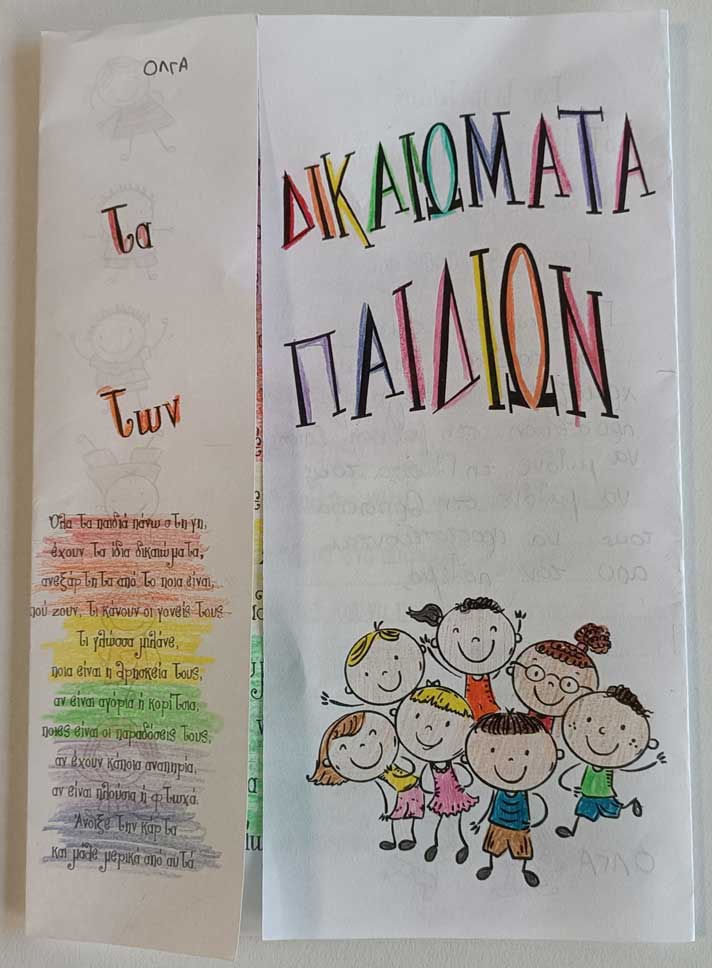 ΟΛΓΑ
τα ΔΙΚΑΙΩΜΑΤΑ
των ΠΑΙΔΙΩΝ
Όλα τα παιδιά πάνω στη γη,
έχουν τα ίδια δικαιώματα,
ανεξάρτητα από το ποια είναι,
πού ζουν, τι κάνουν οι γονείς τους
τι γλώσσα μιλάνε,
ποια είναι η θρησκεία τους,
αν είναι αγόρια ή κορίτσια,
ποιες είναι οι παραδόσεις τους,
αν έχουν κάποια αναπηρία,
αν είναι πλούσια ή φτωχά.
Άνοιξε την κάρτα
και μάθε μερικά από αυτά
ΟΛΓΑ